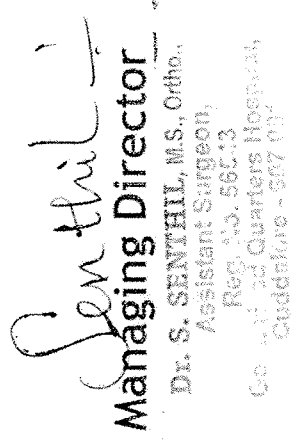 Senthil
Managing Director
Dr. S. SENTHIL, M.S., Ortho.,
Assistant Surgeon,
Reg. No. 56
Quarters Hospital,
Cuddalore - 607